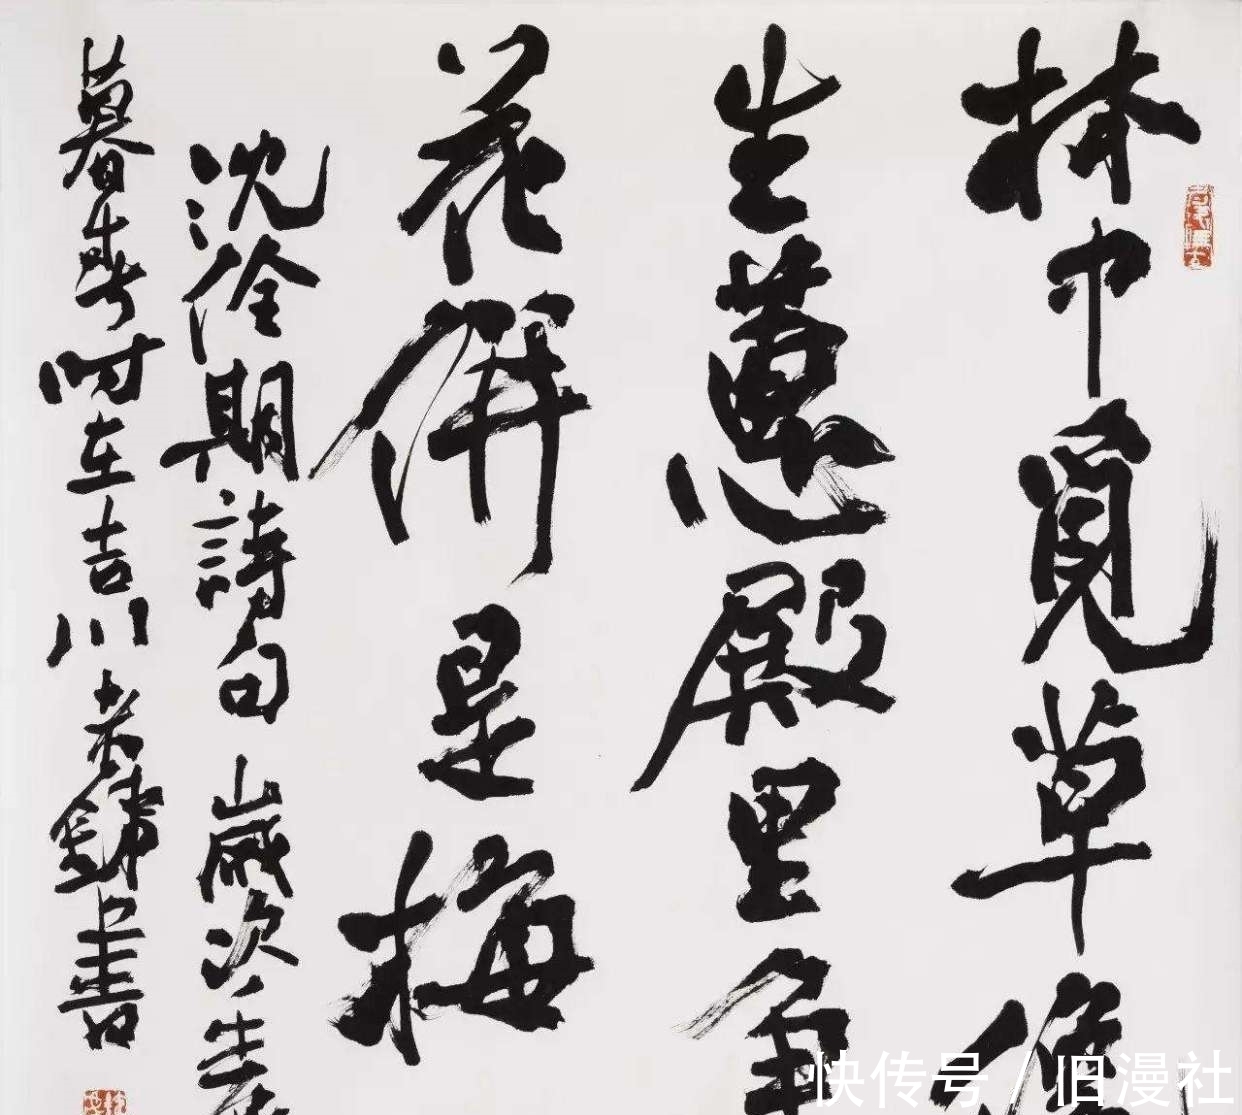 林中覓草
生蕙殿里爭
花併是梅
沈佺期詩句 歲次
暮春時在吉川書
快传号 / 旧漫社